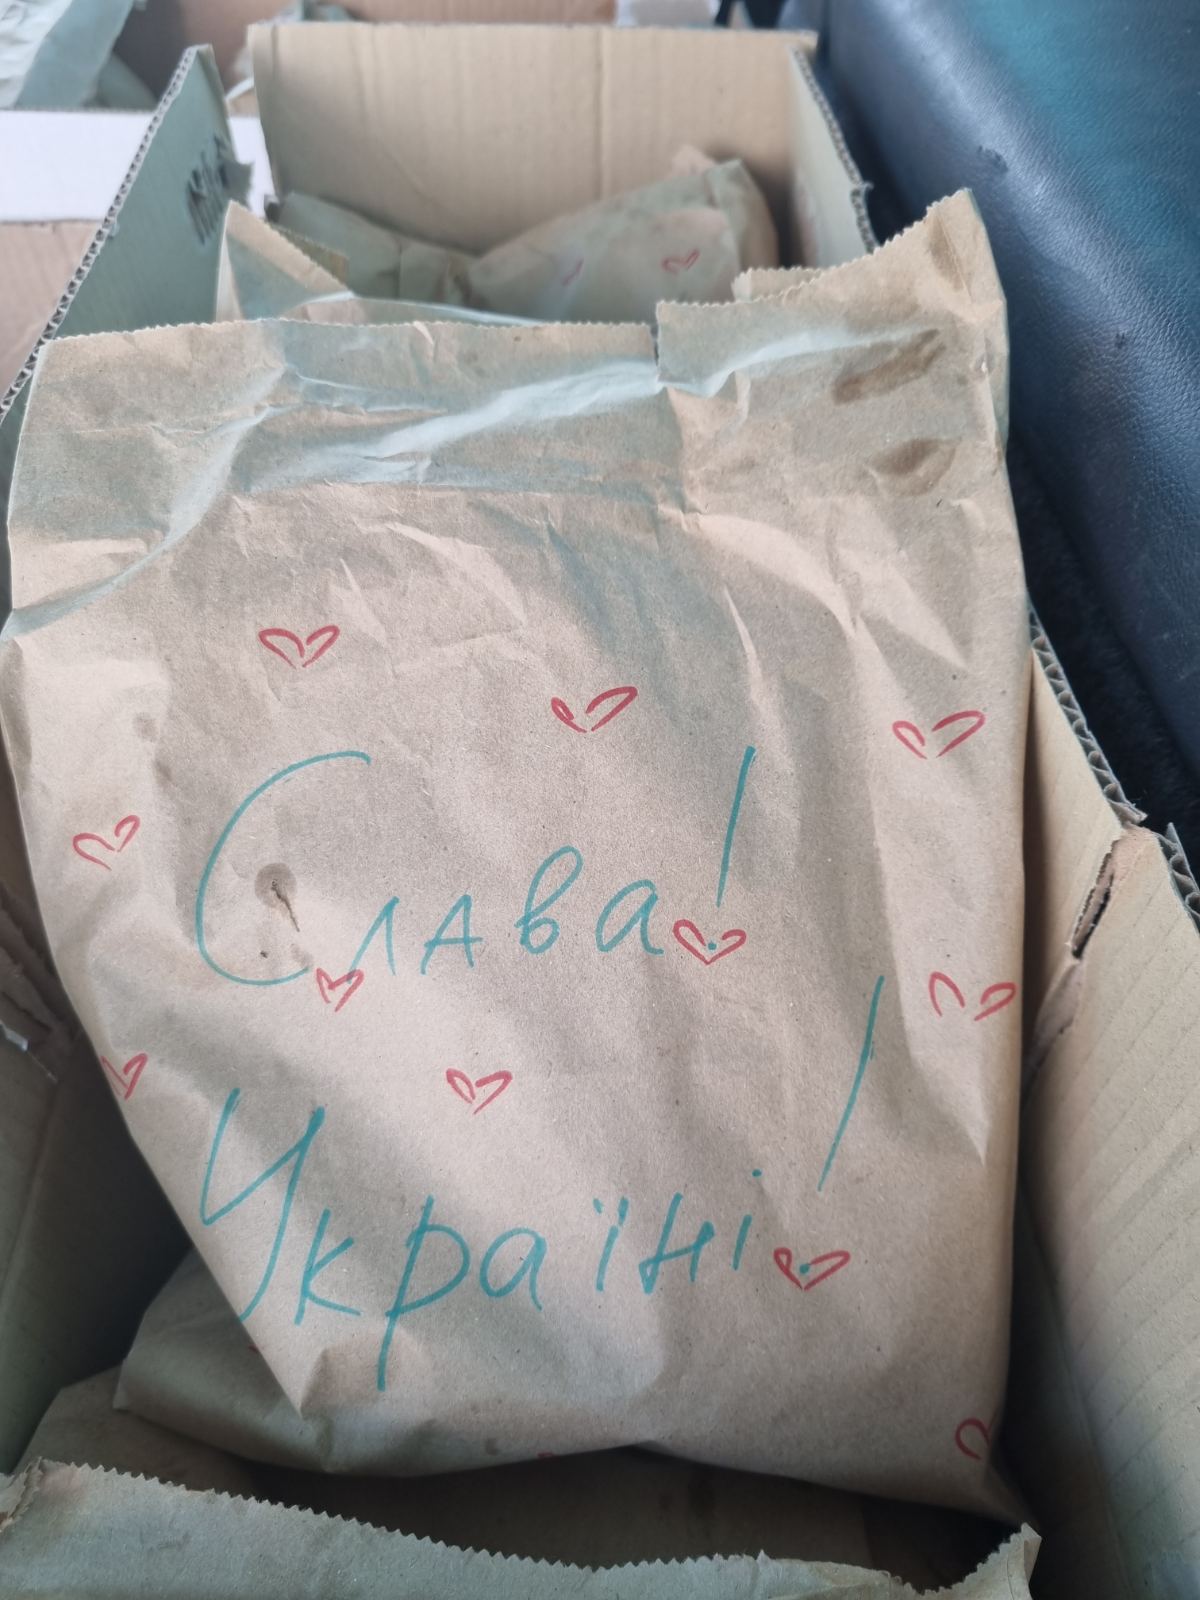 Слава!
Україні!